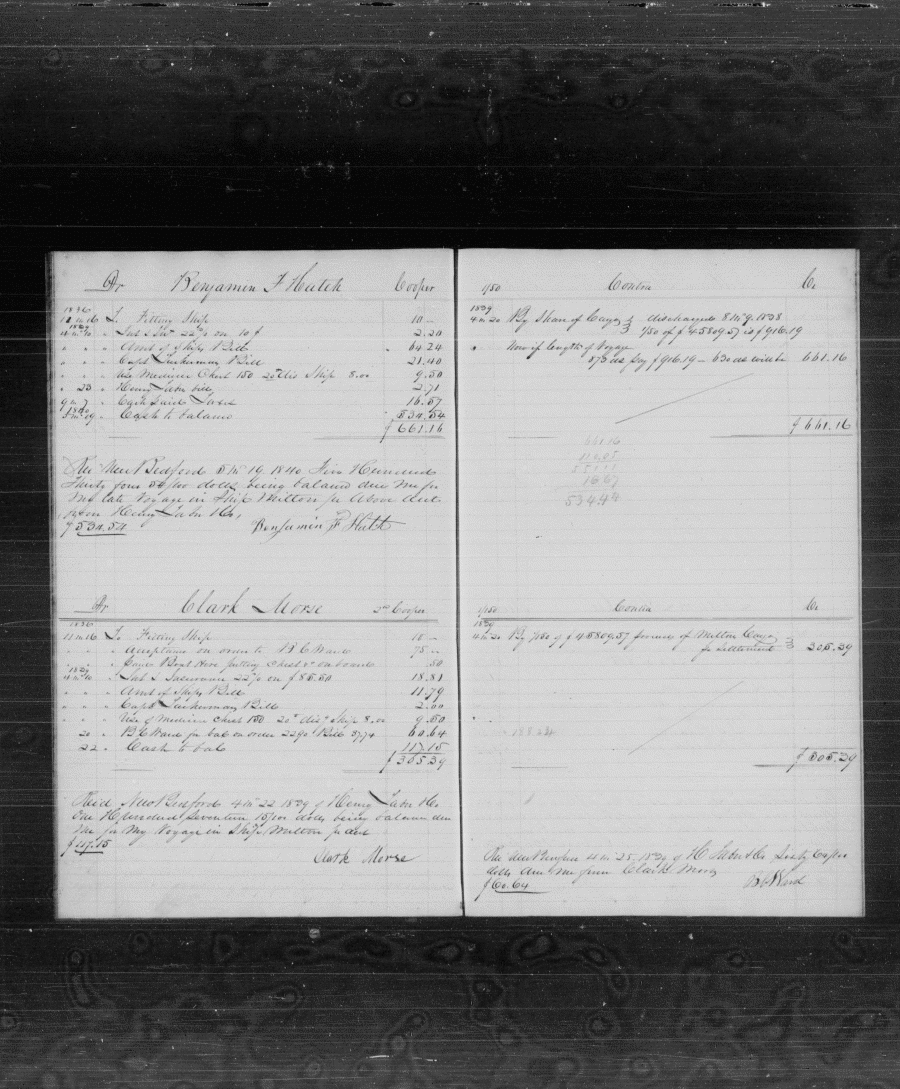 Dr Benjamin F Hatch Cooper
1836
11 m 16 To Fitting Ship 10 –
1839
4 m 20 " Int & Ins 22% on 10 $ 2.20
" " " Amt of Ships Bill 64.24
" " " Capt Tuckerman Bill 21.40
" " " Use Medicine Chest 150 20 dis Ship 8.00 9.50
" 23 " Henry Taber bill 2.71
9 m 7 " Cash paid 16.57
1840
5 m 19 " Cash to balance 534.54
$ 661.16
Rec New Bedford 5 m 19 1840 Five Hundred
Thirty four 54/100 dolls being balance due me for
my late Voyage in Ship Milton pr above acct
Henry Taber & Co,
$ 534.54 Benjamin F Hatch
Dr Clark Morse 2d Cooper
1836
11 m 16 To Fitting Ship 10 –
" " " Acceptance on order to B C Ward 75 –
" " " Boat Hire putting Chest &c on board .50
1839
4 m 20 " Int & Insurance 22% on $ 85.50 18.81
" " " Amt of Ships Bill 11.79
" " " Capt Tuckerman Bill 2.00
" " " Use of Medicine Chest 150 20 dis Ship 8.00 9.50
20 " B C Ward for bal on order 2290 Bill 3774 60.64
22 " Cash to bal 117.15
$ 305.39
Recd New Bedford 4 m 22 1839 of Henry Taber & Co
One Hundred Seventeen 15/100 dolls being balance due
me for my Voyage in Ship Milton pr acct
$ 117.15
Clark Morse
1/50 Contra Cr
1839
4 m 20 By Share of Cargo discharged 8 m 9. 1838
1/50 of $ 45809.57 is $ 916.19
Now if length of Voyage
days pay $ 916.19 – 630 ds will be 661.16
$ 661.16
661.16
16.67
534.44
1/150 Contra Cr
1839
4 m 20 By 1/150 of $ 45809.57 proceeds of Milton Cargo
pr Settlement 305.39
188.24
$ 305.39
Rec New Bedford 4 m 25. 1839 of H Taber & Co Sixty 64/100
dolls due me from Clark Morse
$ 60.64 B C Ward